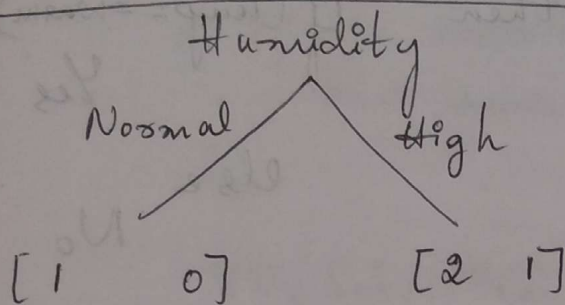 Humidity
Normal High
[1 0] [2 1]